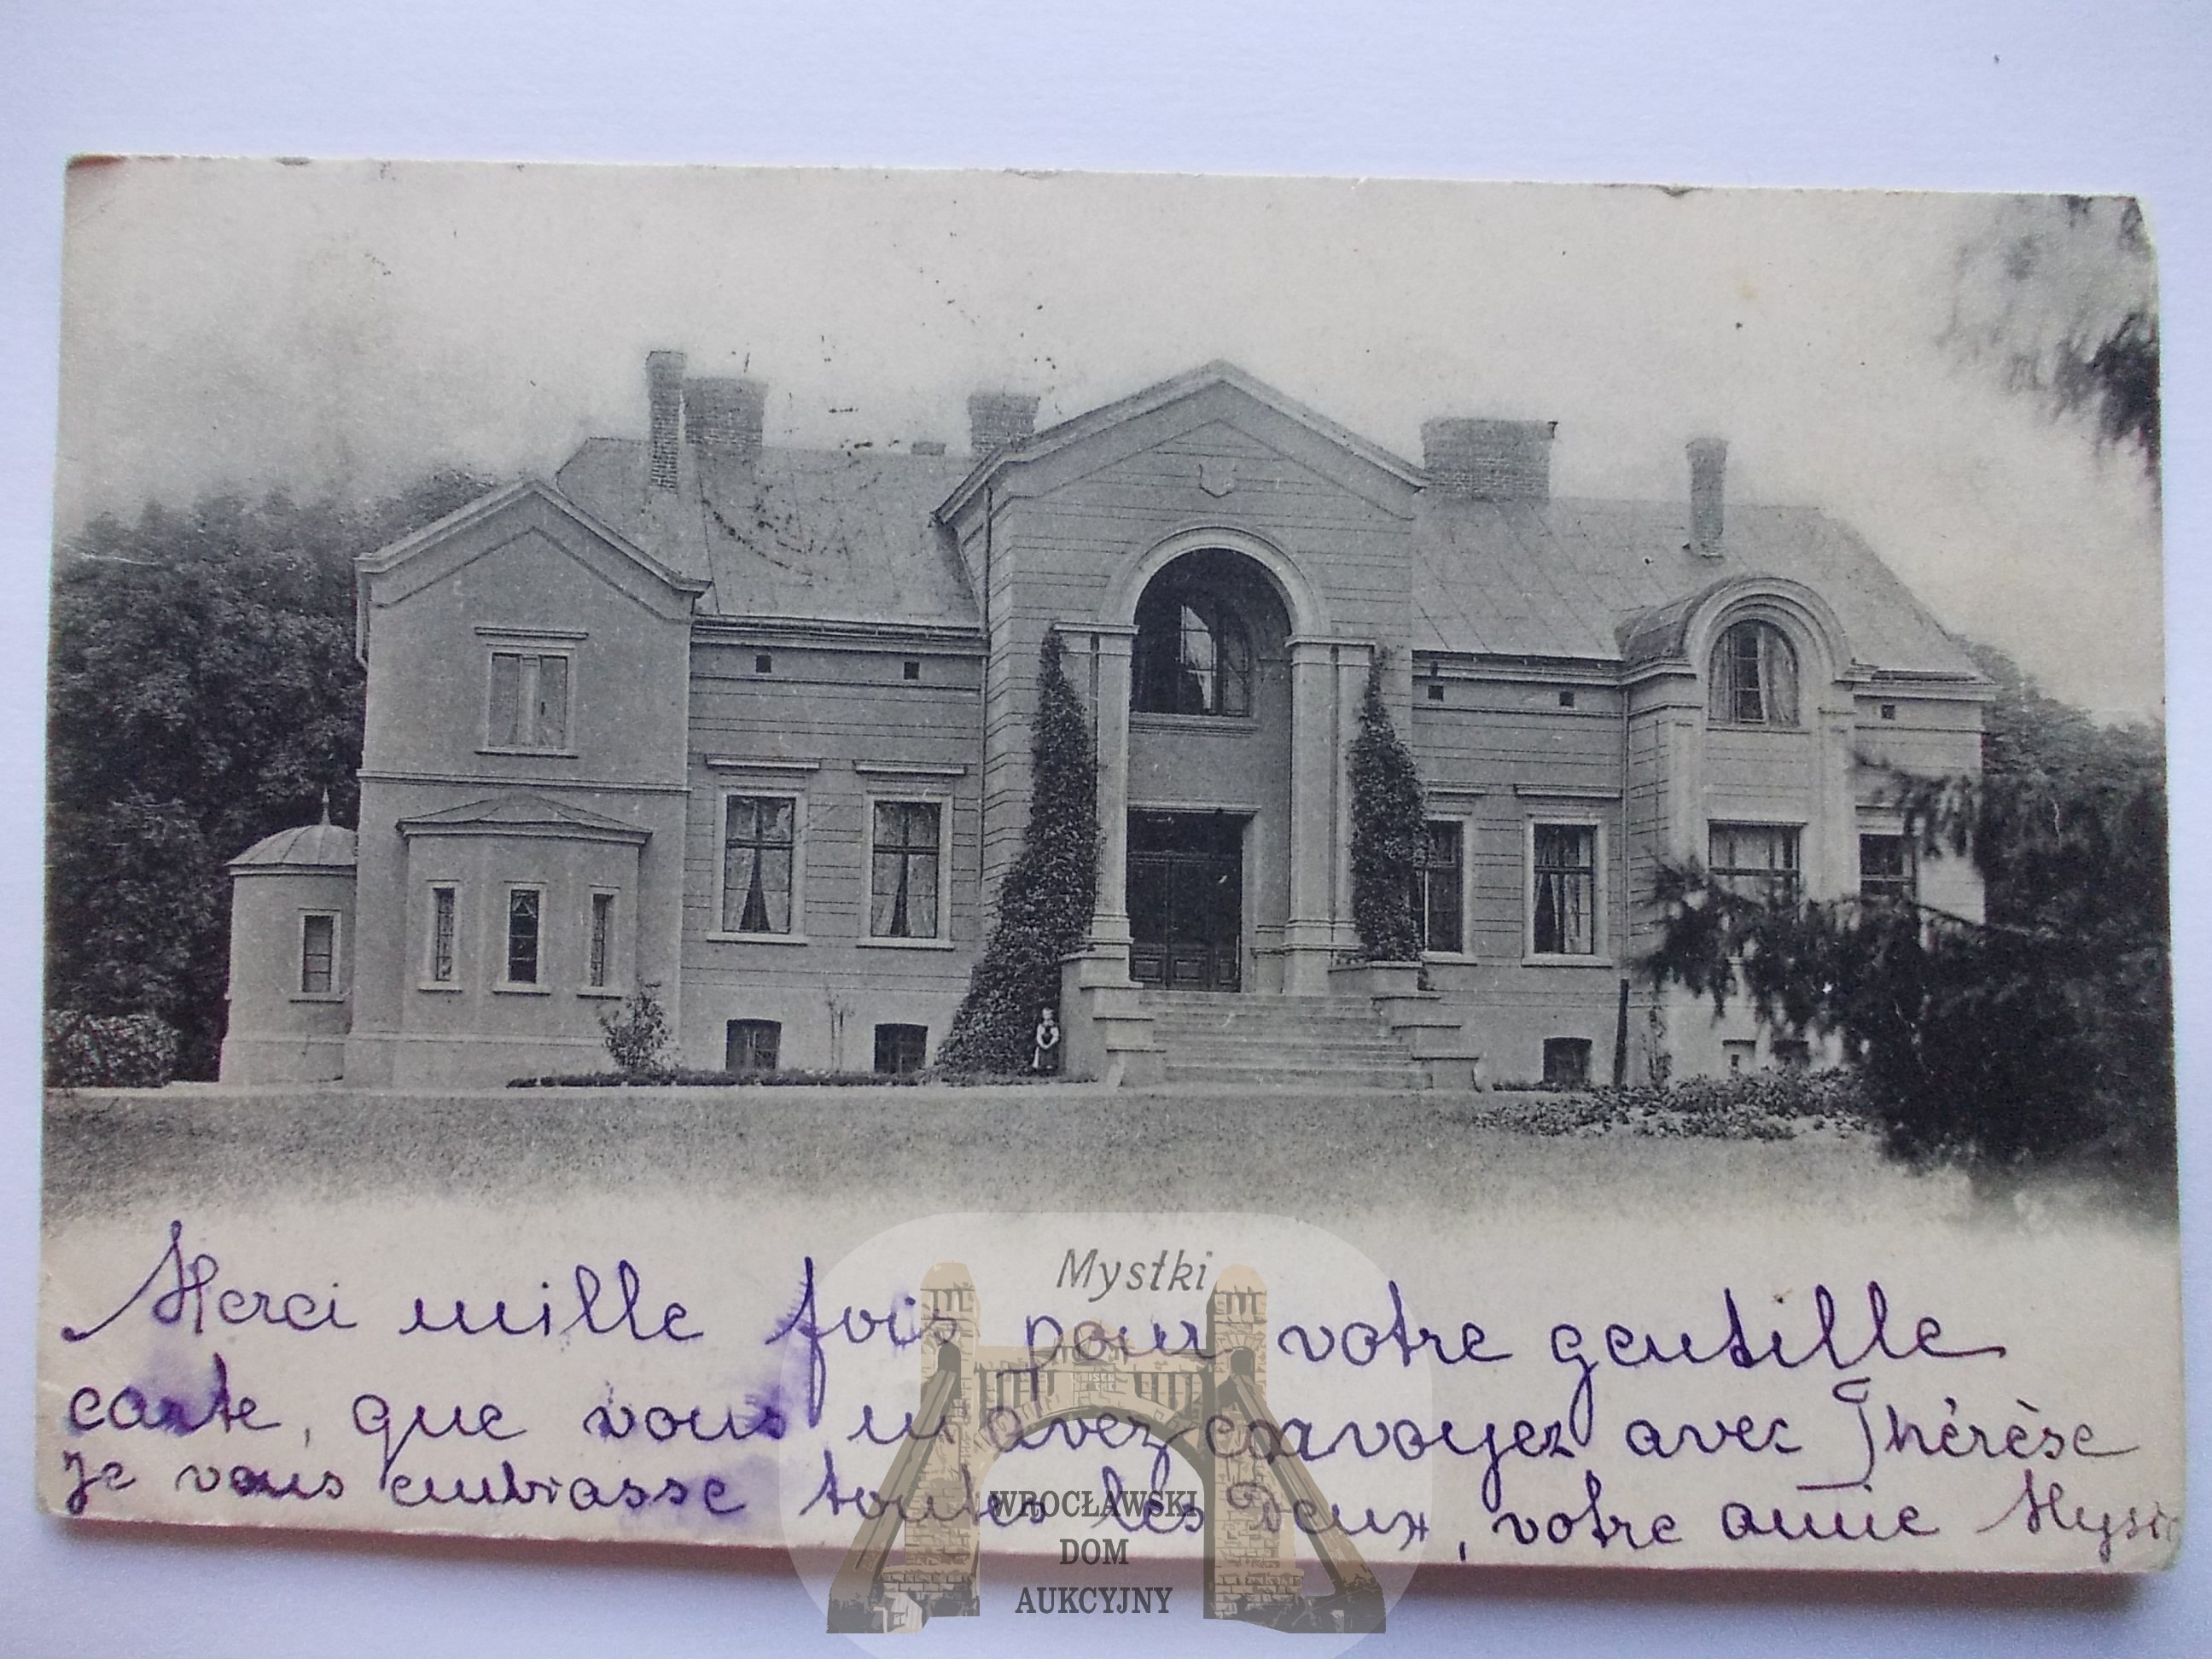 Mystki
Merci mille fois pour votre gentille
carte, que vous m'avez envoyez avec Thérèse
Je vous embrasse toutes les Deux, votre amie
WROCŁAWSKI
DOM
AUKCYJNY